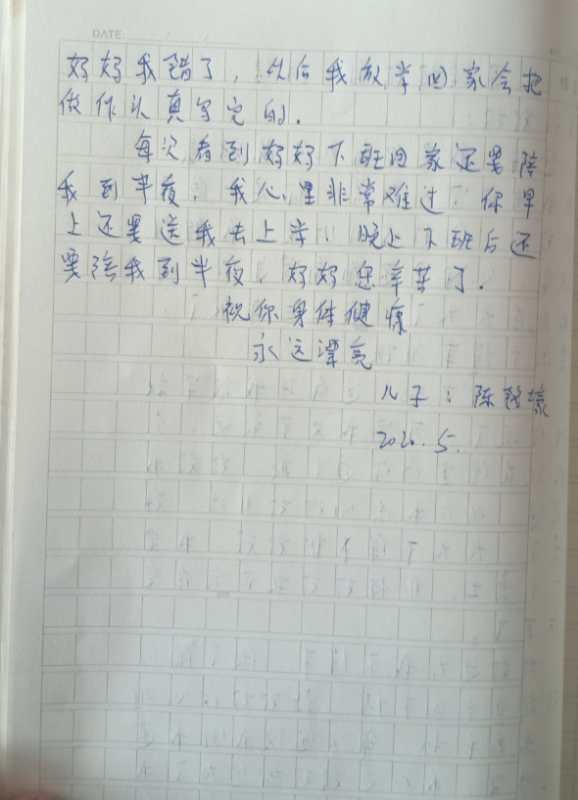 DATE
好好我错了,从后我放学回家会把
做作认真写完的.
每次看到好好下班回家还要陪
我到半夜.我心里非常难过.你早
上还要送我去上学.晚上下班后还
要陪我到半夜.好好您辛苦了.
祝你身体健康
永远漂亮
儿子:陈
5.